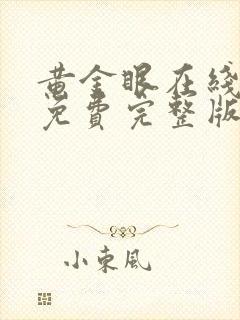 黄金眼在线
免費完整版
小東風